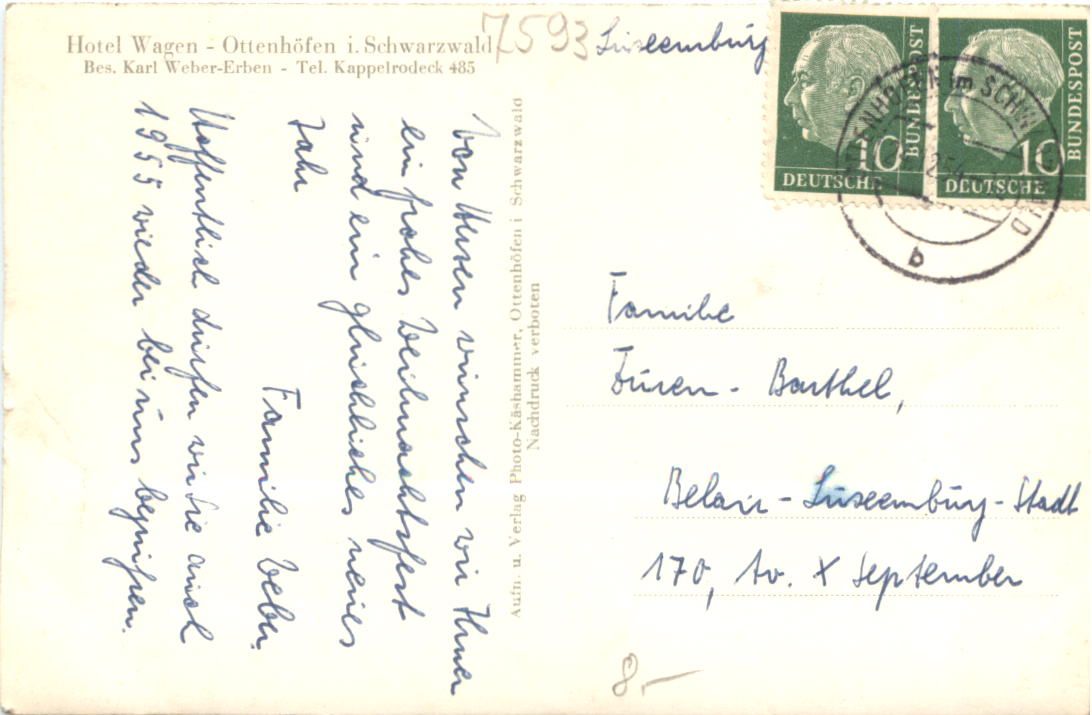 Hotel Wagen - Ottenhöfen i. Schwarzwald
Bes. Karl Weber-Erben - Tel. Kappelrodeck 485
7593
Luxemburg
BUNDESPOST
10
DEUTSCHE
BUNDESPOST
10
DEUTSCHE
b
wünschen wir Ihnen
ein frohes Weihnachtsfest
und ein glückliches neues
Jahr
Familie Weber.
Hoffentlich dürfen wir Sie auch
1955 wieder bei uns begrüßen.
Aufn. u. Verlag Photo-Käshammer, Ottenhöfen i Schwarzwald
Nachdruck verboten
Familie
Barthel,
Belair - Luxemburg-Stadt
170, Av. X September
8.-